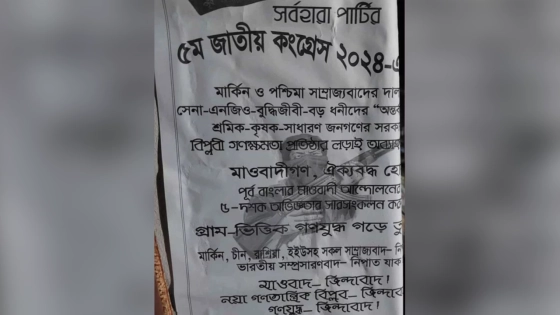 সর্বহারা পার্টির
৫ম জাতীয় কংগ্রেস ২০২৪-এ
মার্কিন ও পশ্চিমা সাম্রাজ্যবাদের দাল
সেনা-এনজিও-বুদ্ধিজীবী-বড় ধনীদের “অন্তব
শ্রমিক-কৃষক-সাধারণ জনগণের সরকা
বিপ্লবী গণক্ষমতা প্রতিষ্ঠার লড়াই অব্যাহ
মাওবাদীগণ, ঐক্যবদ্ধ হো
পূর্ব বাংলার মাওবাদী আন্দোলনের
৫-দশক অভিজ্ঞতার সারসংকলন কর
গ্রাম-ভিত্তিক গণযুদ্ধ গড়ে তু
মার্কিন, চীন, রাশিয়া, ইইউসহ সকল সাম্রাজ্যবাদ– নি
ভারতীয় সম্প্রসারণবাদ– নিপাত যাক
মাওবাদ– জিন্দাবাদ!
নয়া গণতান্ত্রিক বিপ্লব– জিন্দাব
গণযুদ্ধ– জিন্দাবাদ!